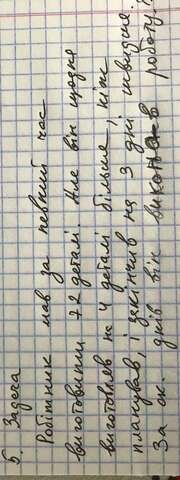 5. Задача
Робітник мав за певний час
виготовити 72 деталі. Але він щодня
виготовляв на 4 деталі більше, ніж
планував, і закінчив на 3 дні швидше.
За ск. днів він виконав роботу?